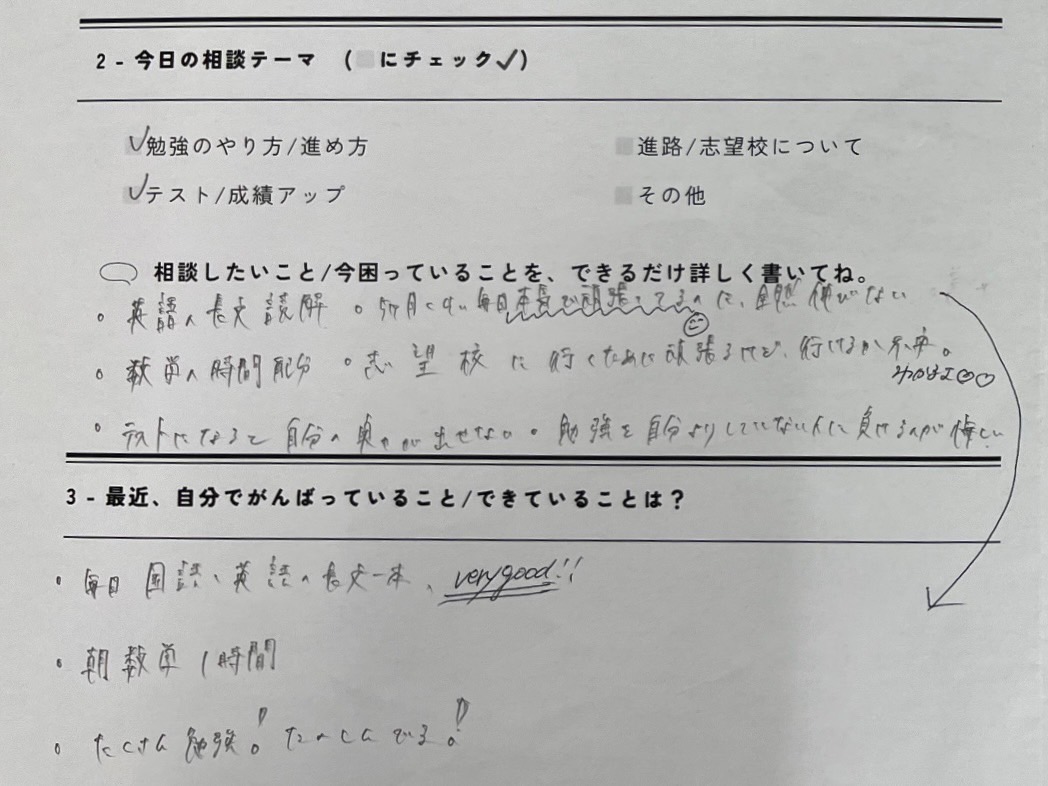 2 - 今日の相談テーマ (□にチェック✓)
✓勉強のやり方/進め方 □進路/志望校について
✓テスト/成績アップ □その他
相談したいこと/今困っていることを、できるだけ詳しく書いてね。
・英語の長文読解 ・5ヶ月くらい毎日本気で頑張ってるのに、全然伸びない
・数学の時間配分 ・志望校に行くために頑張るけど、行けるか不安。
わかるよ♡♡
・テストになると自分の実力が出せない ・勉強を自分よりしていない人に負けるのが悔しい
3 - 最近、自分でがんばっていること/できていることは?
・毎日国語、英語の長文一本、very good!!
・朝数学1時間
・たくさん勉強! たのしんでる!